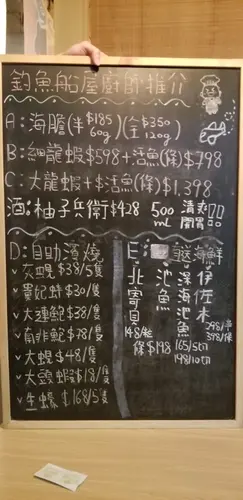 釣魚船屋廚師推介
A：海膽(半 $185 60g)(全 $350 120g)
B：細龍蝦$598+活魚(條)$798
C：大龍蝦+$活魚(條)$1,398
酒：柚子兵衛$428 500mL 清爽開胃
D：自助濱燒
灰蜆 $38/5隻
貴妃蚌 $30/隻
大連鮑$38/隻
南非鮑$78/隻
大蜆 $48/隻
大頭蝦$18/隻
生蠔 $168/5隻
E：海鮮
北寄貝
148/蛤
池魚
條$198
深海池魚
165/5切
198/10切
伊佐木
298/半
398/條